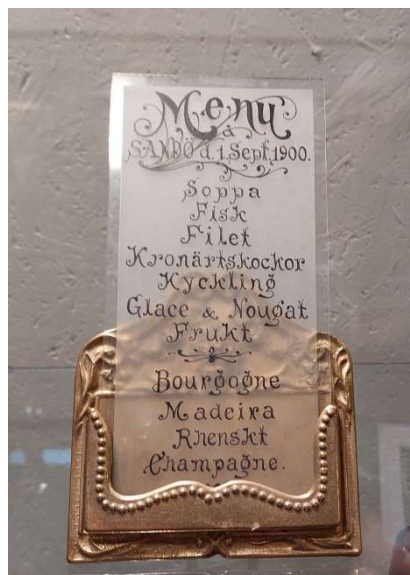 Menu
à
SANDÖ d. 1. Sept. 1900.
Soppa
Fisk
Filet
Kronärtskockor
Kyckling
Glace & Nougat
Frukt
Bourgogne
Madeira
Rhenskt
Champagne.